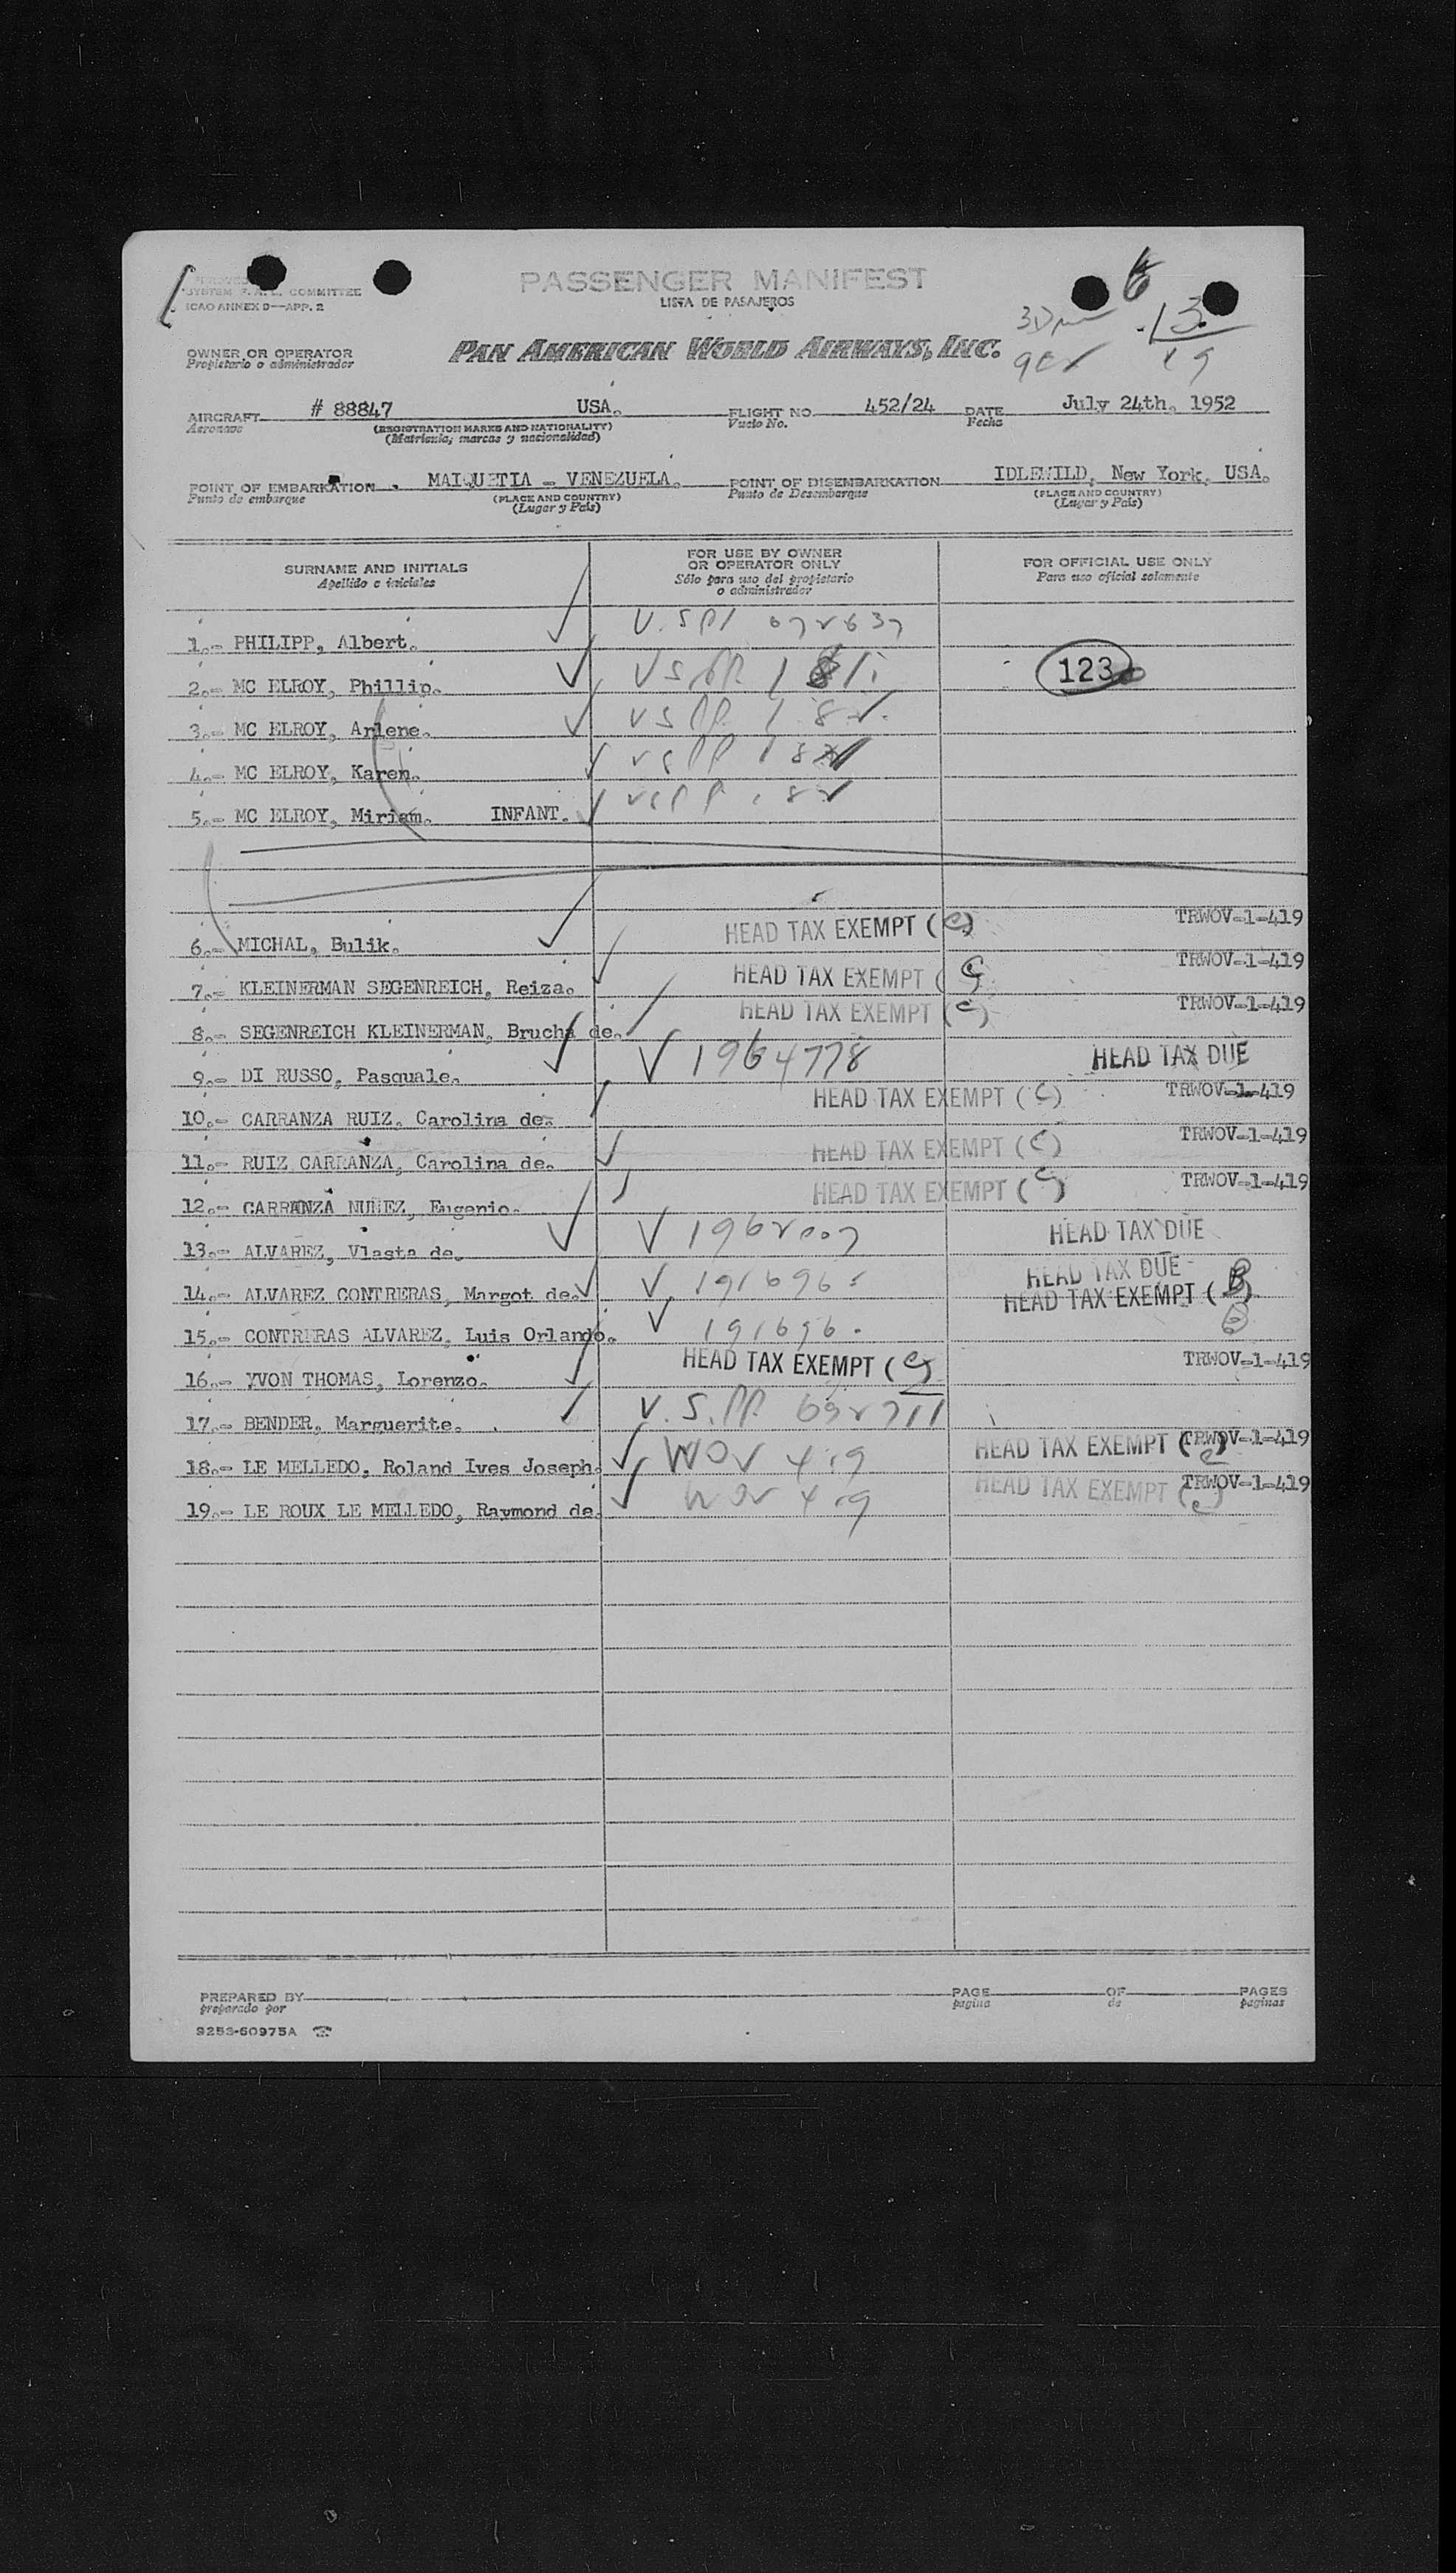 PASSENGER MANIFEST
LISTA DE PASAJEROS
SYSTEM F. A. L. COMMITTEE
ICAO ANNEX 9—APP. 2
6
13
19
OWNER OR OPERATOR
Propietario o administrador
PAN AMERICAN WORLD AIRWAYS, INC.
AIRCRAFT # 88847 USA. FLIGHT NO. 452/24 DATE July 24th. 1952
Aeronave (REGISTRATION MARKS AND NATIONALITY) Vuelo No. Fecha
(Matricula; marcas y nacionalidad)
POINT OF EMBARKATION MAIQUETIA - VENEZUELA. POINT OF DISEMBARKATION IDLEWILD, New York, USA.
Punto de embarque (PLACE AND COUNTRY) Punto de Desembarque (PLACE AND COUNTRY)
(Lugar y País) (Lugar y País)
SURNAME AND INITIALS
Apellido e iniciales
FOR USE BY OWNER
OR OPERATOR ONLY
Sólo para uso del propietario
o administrador
FOR OFFICIAL USE ONLY
Para uso oficial solamente
1.- PHILIPP, Albert.
2.- MC ELROY, Phillip. 123
3.- MC ELROY, Arlene.
4.- MC ELROY, Karen.
5.- MC ELROY, Miriam. INFANT.
6.- MICHAL, Bulik. HEAD TAX EXEMPT (C) TRWOV-1-419
7.- KLEINERMAN SEGENREICH, Reiza. HEAD TAX EXEMPT (C TRWOV-1-419
8.- SEGENREICH KLEINERMAN, Brucha de. HEAD TAX EXEMPT (C) TRWOV-1-419
9.- DI RUSSO, Pasquale. V 1964778 HEAD TAX DUE
10.- CARRANZA RUIZ, Carolina de. HEAD TAX EXEMPT (C) TRWOV-1-419
11.- RUIZ CARRANZA, Carolina de. HEAD TAX EXEMPT (C) TRWOV-1-419
12.- CARRANZA NUNEZ, Eugenio. HEAD TAX EXEMPT (C) TRWOV-1-419
13.- ALVAREZ, Vlasta de. HEAD TAX DUE
14.- ALVAREZ CONTRERAS, Margot de. V 191696 HEAD TAX DUE
HEAD TAX EXEMPT (B)
15.- CONTRERAS ALVAREZ, Luis Orlando. V 191696. B
16.- YVON THOMAS, Lorenzo. HEAD TAX EXEMPT (C) TRWOV-1-419
17.- BENDER, Marguerite.
18.- LE MELLEDO, Roland Ives Joseph. WOV 419 HEAD TAX EXEMPT (C) TRWOV-1-419
19.- LE ROUX LE MELLEDO, Raymond de. WOV 419 HEAD TAX EXEMPT (C) TRWOV-1-419
PREPARED BY PAGE OF PAGES
preparado por pagina de paginas
9253-60975A